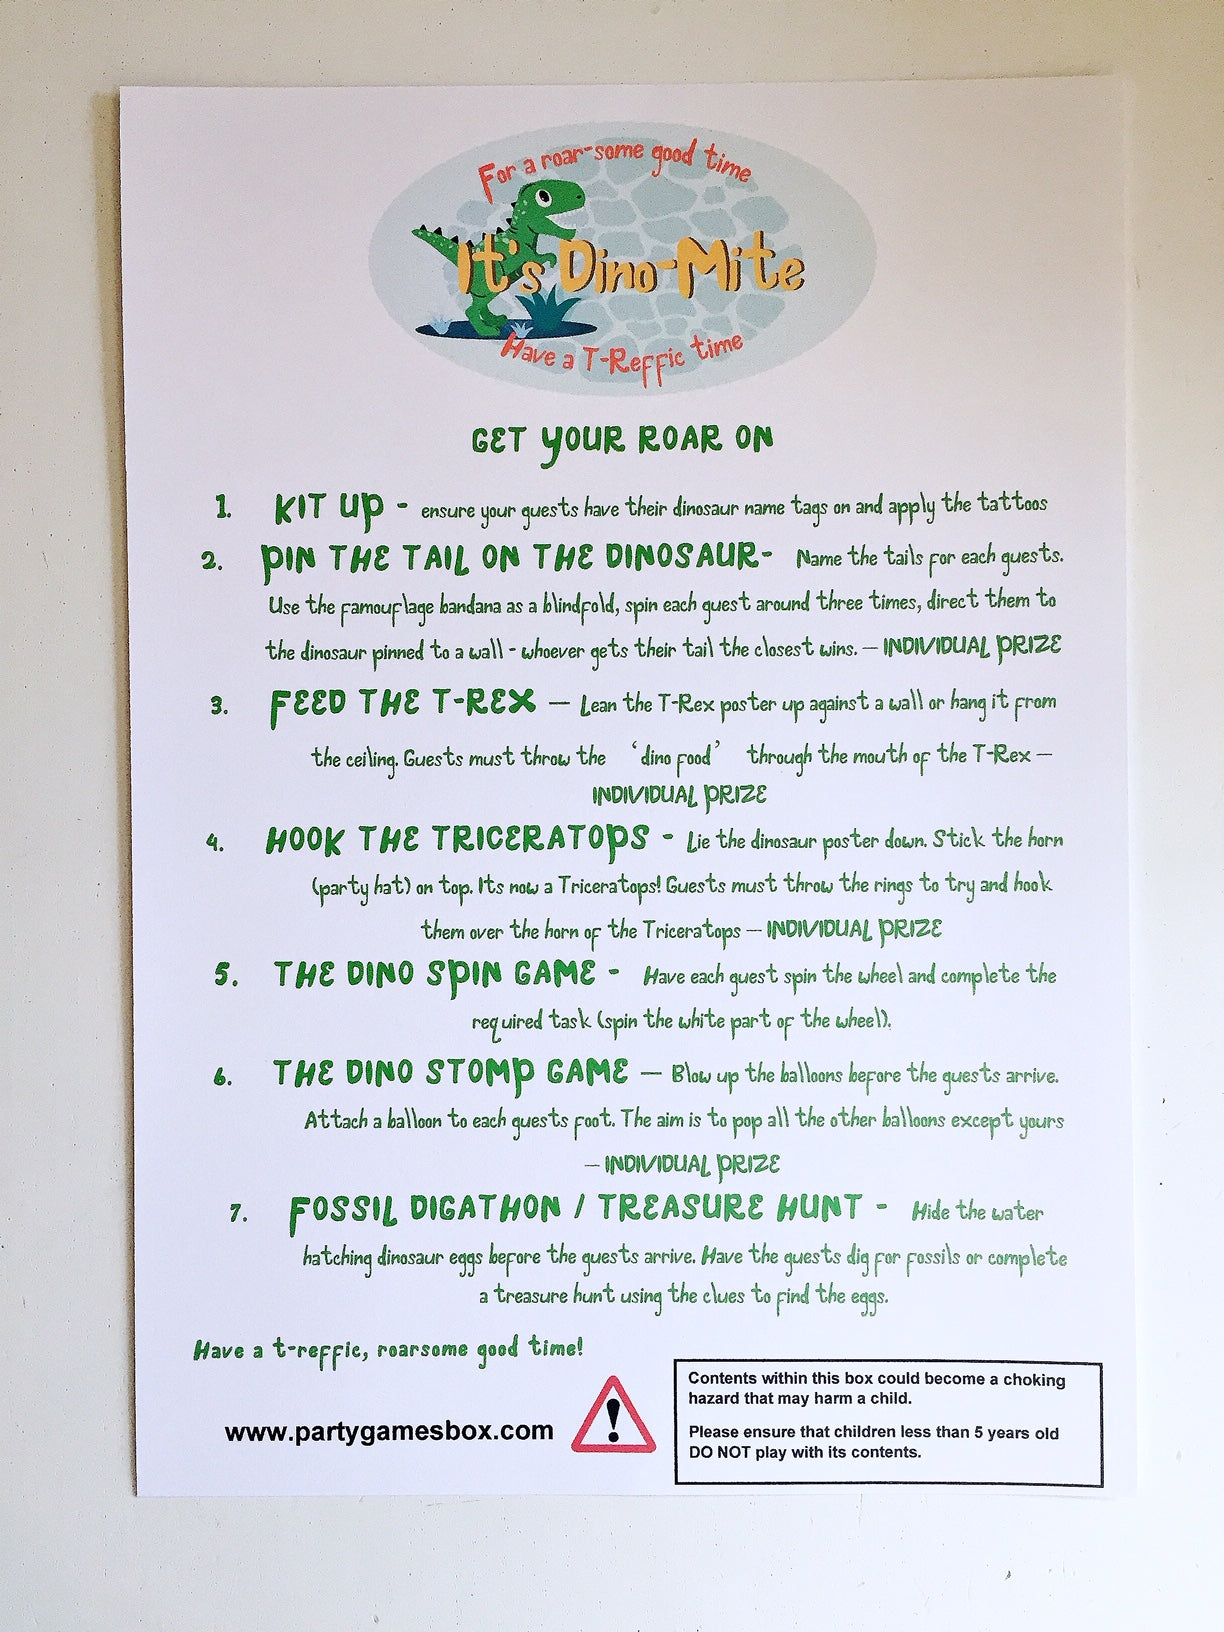 For a roar-some good time
It's Dino-Mite
Have a T-Reffic time
GET YOUR ROAR ON
1. KIT UP - ensure your guests have their dinosaur name tags on and apply the tattoos
2. PIN THE TAIL ON THE DINOSAUR- Name the tails for each guests.
Use the famouflage bandana as a blindfold, spin each guest around three times, direct them to
the dinosaur pinned to a wall - whoever gets their tail the closest wins. – INDIVIDUAL PRIZE
3. FEED THE T-REX – Lean the T-Rex poster up against a wall or hang it from
the ceiling. Guests must throw the ‘dino food’ through the mouth of the T-Rex –
INDIVIDUAL PRIZE
4. HOOK THE TRICERATOPS - Lie the dinosaur poster down. Stick the horn
(party hat) on top. Its now a Triceratops! Guests must throw the rings to try and hook
them over the horn of the Triceratops – INDIVIDUAL PRIZE
5. THE DINO SPIN GAME - Have each guest spin the wheel and complete the
required task (spin the white part of the wheel).
6. THE DINO STOMP GAME – Blow up the balloons before the guests arrive.
Attach a balloon to each guests foot. The aim is to pop all the other balloons except yours
– INDIVIDUAL PRIZE
7. FOSSIL DIGATHON / TREASURE HUNT - Hide the water
hatching dinosaur eggs before the guests arrive. Have the guests dig for fossils or complete
a treasure hunt using the clues to find the eggs.
Have a t-reffic, roarsome good time!
www.partygamesbox.com
Contents within this box could become a choking
hazard that may harm a child.
Please ensure that children less than 5 years old
DO NOT play with its contents.